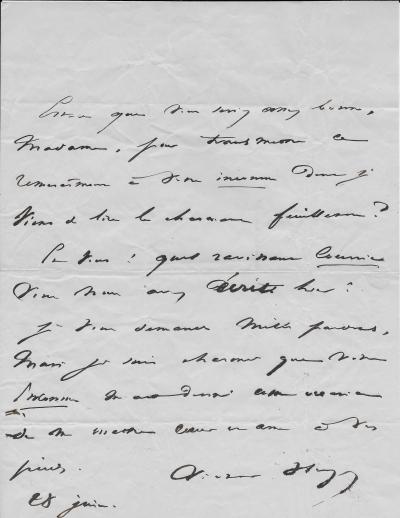 Est-ce que vous serez assez bonne,
Madame, pour transmettre ce
remerciement à votre inconnu dont je
viens de lire le charmant feuilleton?
Et vous! quel ravissant Courrier
vous nous avez écrit hier!
je vous demande mille pardons,
mais je suis charmé que votre
inconnu m'ait donné cette occasion
de me mettre cœur et âme à vos
pieds.
Victor Hugo
28 juin.